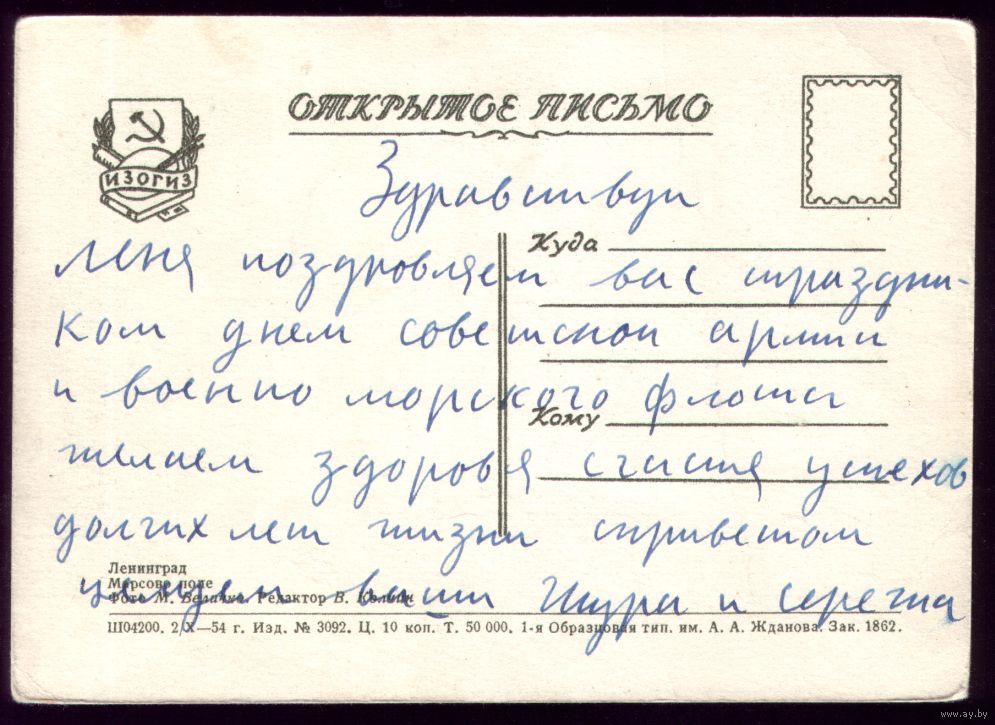 ОТКРЫТОЕ ПИСЬМО
ИЗОГИЗ
Здравствуй
Куда
Леня поздровляем вас спраздни-
ком днем советской армии
и военно морского флота
Кому
желаем здоровья счастя успехов
долгих лет жизни сприветом
Ленинград
Марсово поле
Фото М. Величко. Редактор В.
целуем ваши Шура и Сережа
Ш04200. 2/X—54 г. Изд. № 3092. Ц. 10 коп. Т. 50 000. 1-я Образцовая тип. им. А. А. Жданова. Зак. 1862.
www.ay.by